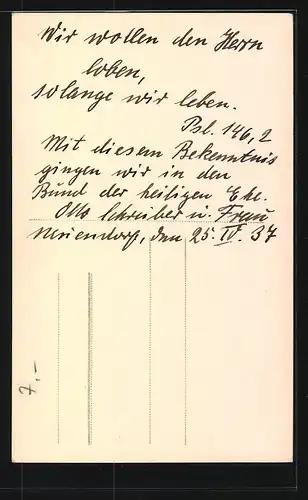 Wir wollen den Herrn
loben,
solange wir leben.
Psl. 146,2
Mit diesem Bekenntnis
gingen wir in den
Bund der heiligen Ehe.
Otto Schreiber u. Frau
Neuendorf, den 25. IV. 37
7,-